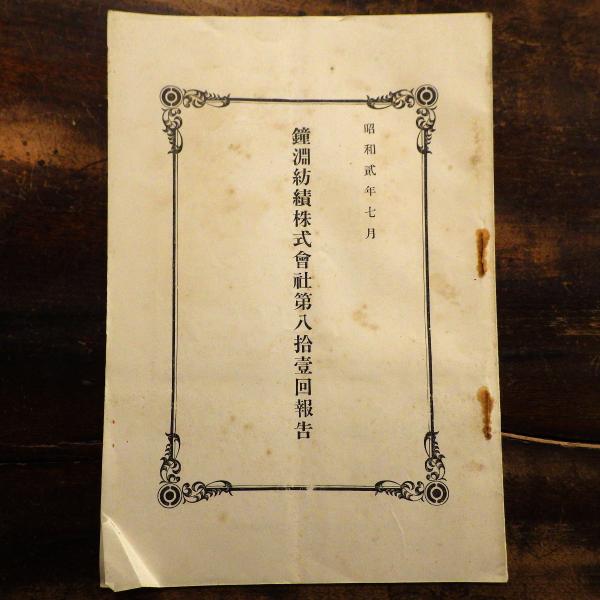 昭和貳年七月
鐘淵紡績株式會社第八拾壹回報告